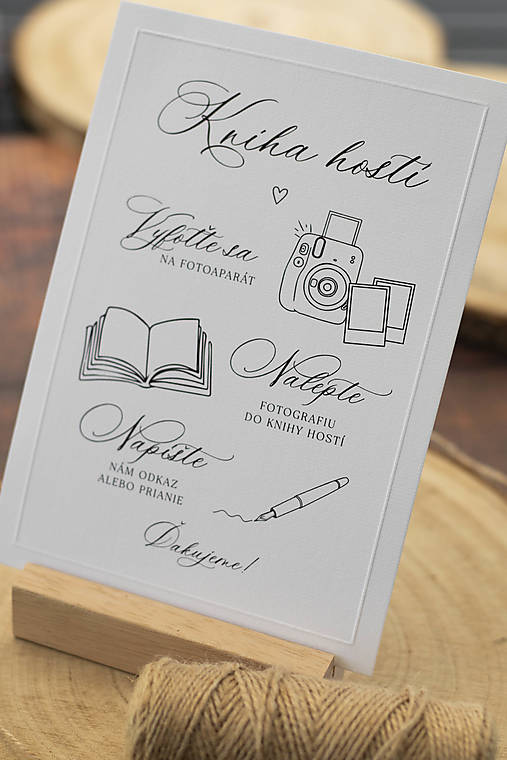 Kniha hostí
Vyfoťte sa
NA FOTOAPARÁT
Nalepte
FOTOGRAFIU
DO KNIHY HOSTÍ
Napíšte
NÁM ODKAZ
ALEBO PRIANIE
Ďakujeme!